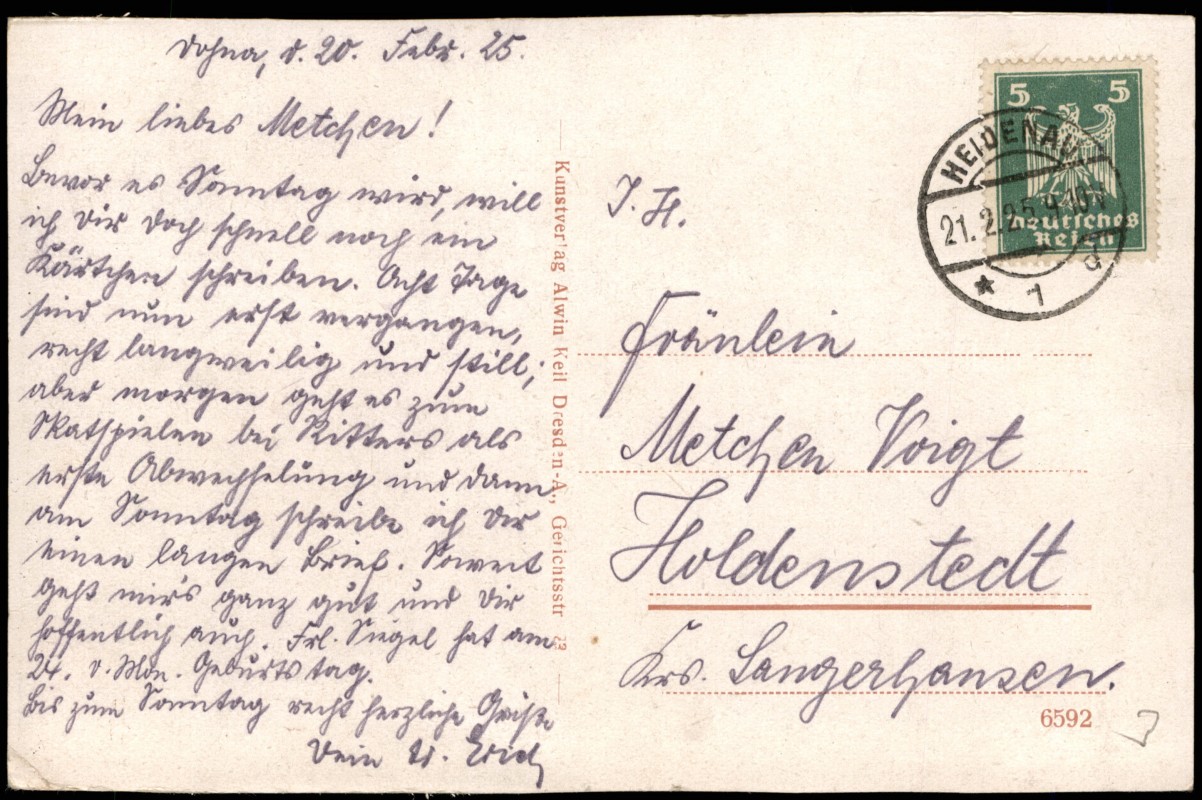 Dohna, d. 20. Febr. 25.
Mein liebes Metchen!
Bevor es Sonntag wird, will
ich Dir doch schnell noch ein
Kärtchen schreiben. Acht Tage
sind nun erst vergangen,
recht langweilig und still;
aber morgen geht es zum
Skatspielen bei Ritters als
erste Abwechselung und dann
am Sonntag schreibe ich Dir
einen langen Brief. Soweit
geht mir's ganz gut und Dir
hoffentlich auch. Frl. Siegel hat am
24. d. Mon. Geburtstag.
Bis zum Sonntag recht herzliche Grüße
Dein
Kunstverlag Alwin Keil Dresden-A., Gerichtsstr
5 5
Deutsches
Reich
HEIDENAU
21.2.25.9-10V
* 1 d
Fräulein
Metchen Voigt
Holdenstedt
Krs. Sangerhausen.
6592